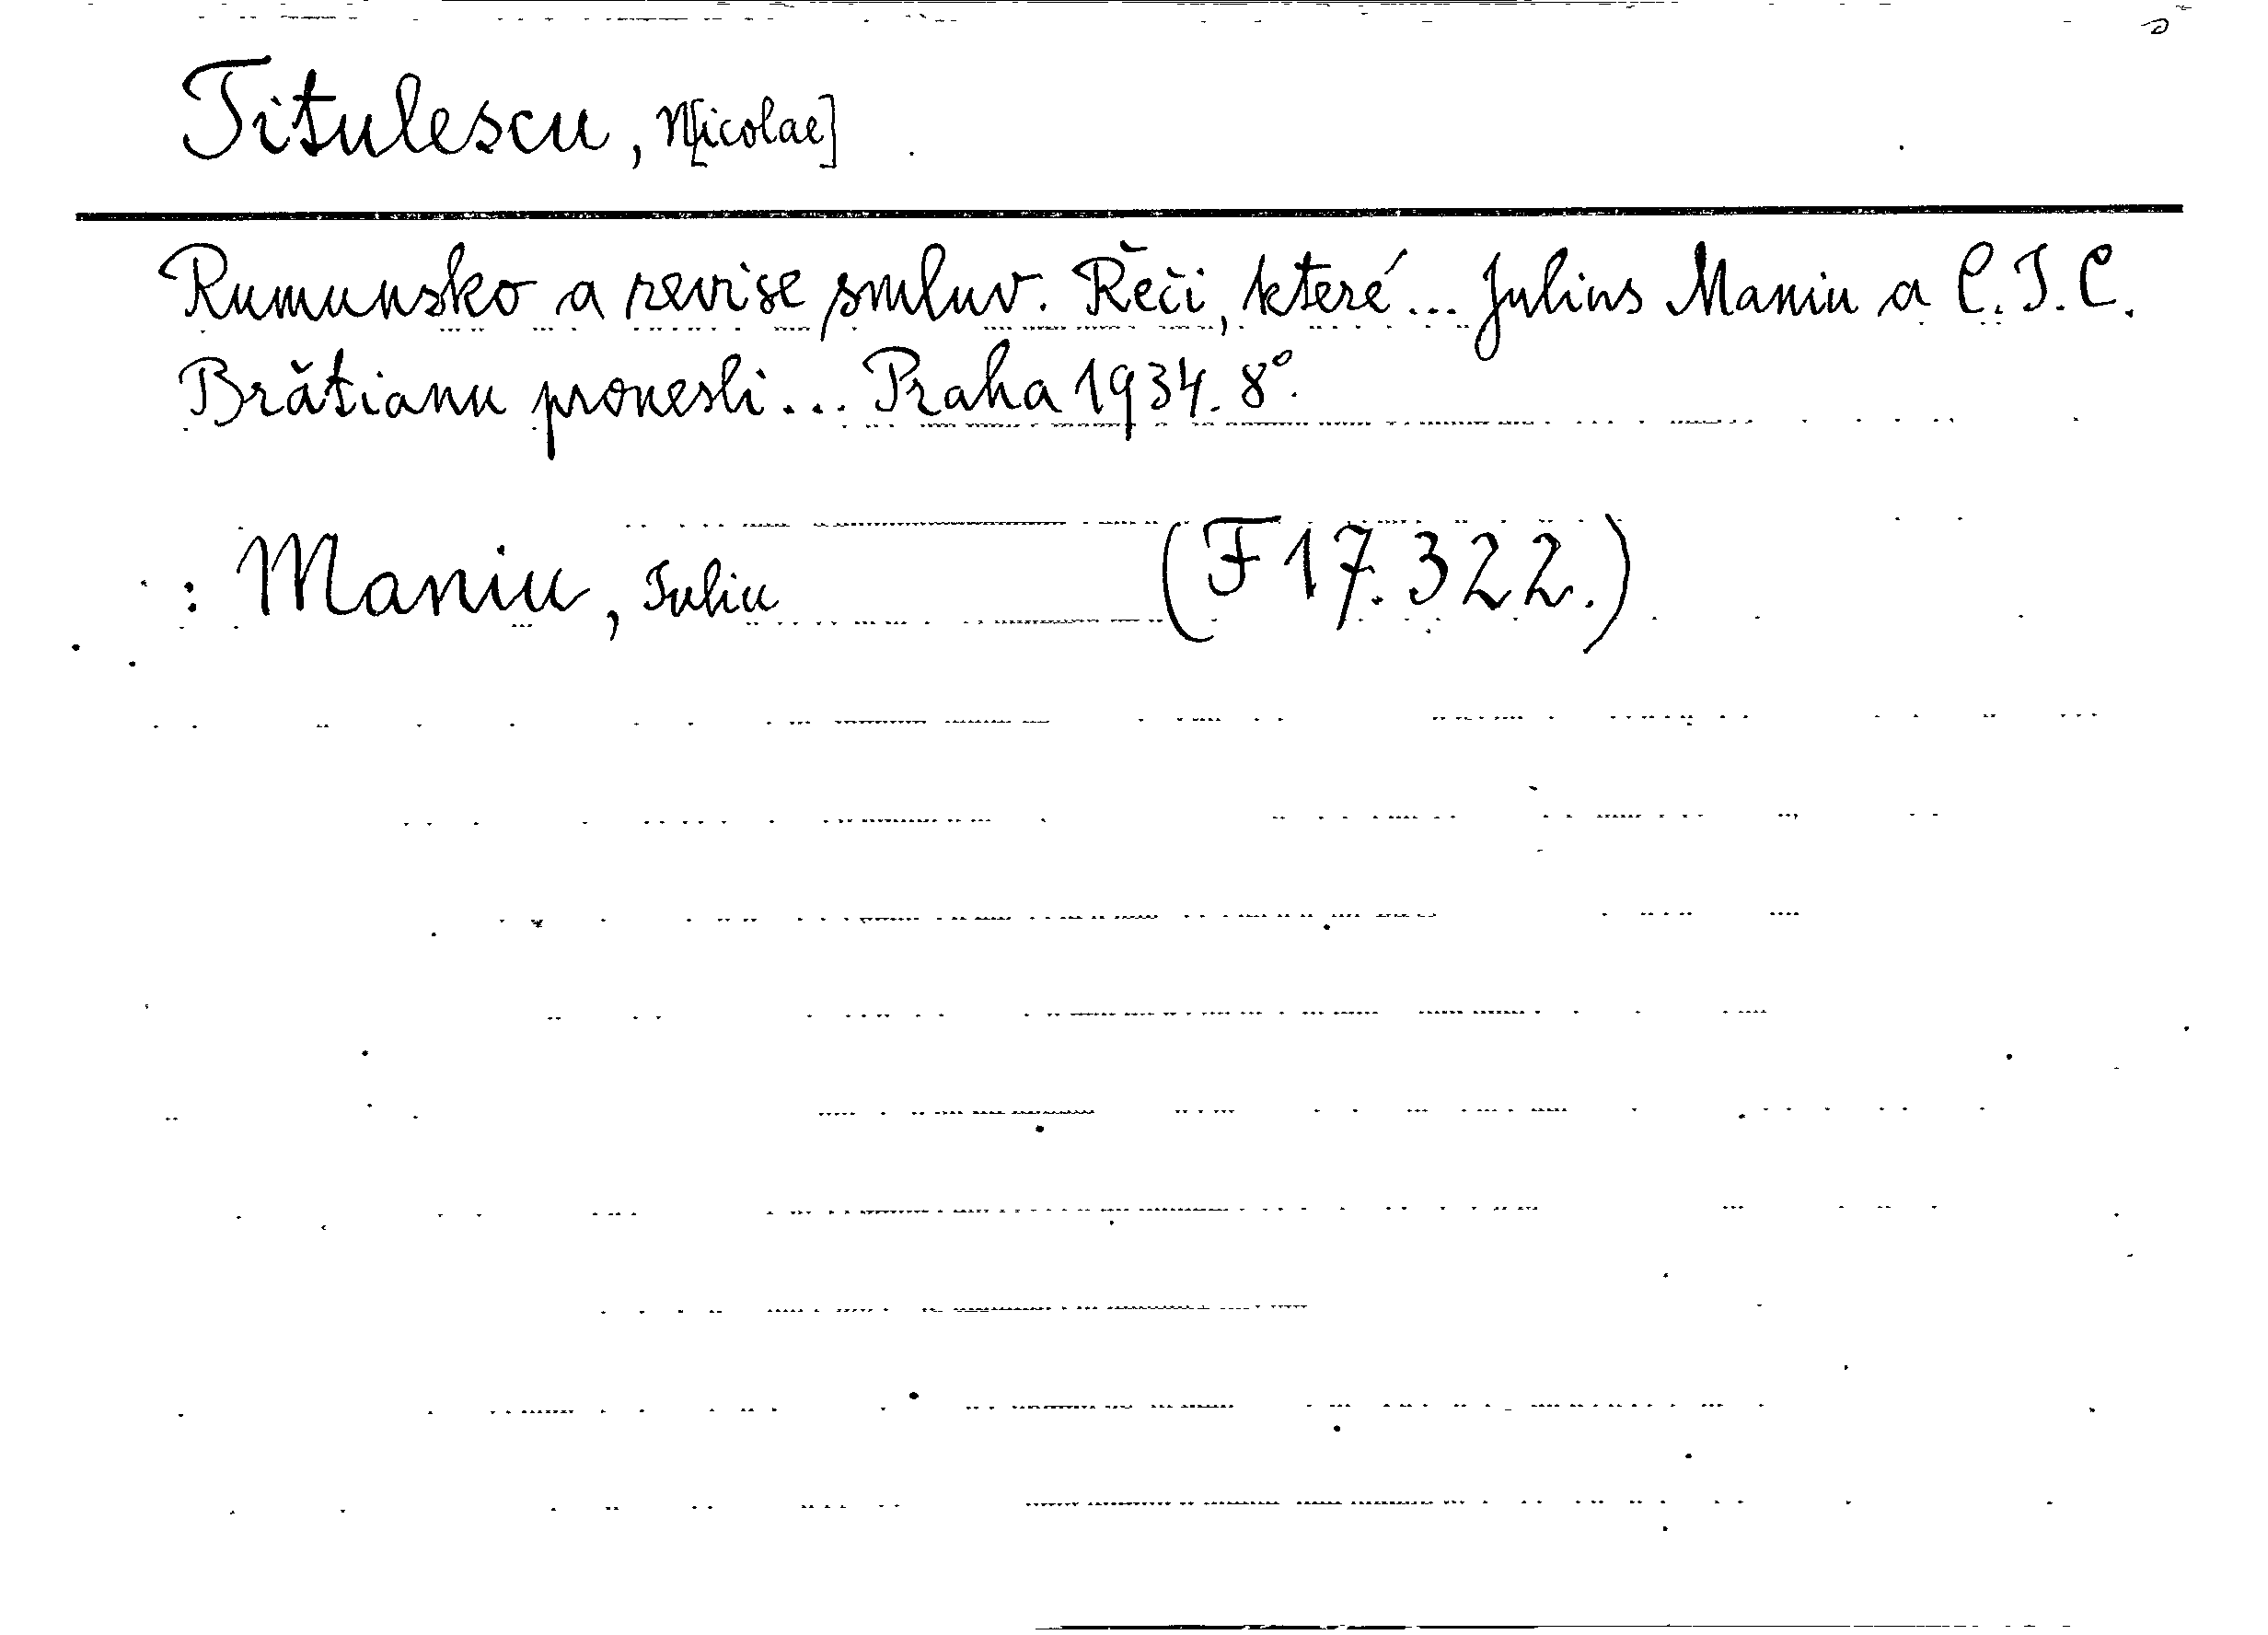 Titulescu, N[icolae]
Rumunsko a revise smluv. Řeči, které... Julius Maniu a C. I. C.
Brătianu pronesli... Praha 1934. 8°.
: Maniu, Iuliu (F 17.322.)